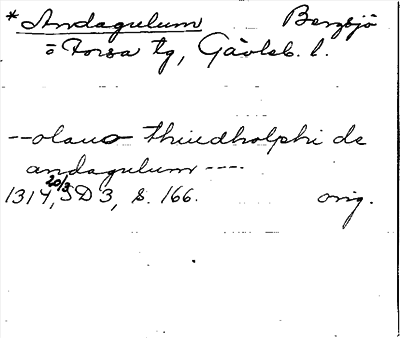 * Andagulum Bergsjö
o Forsa tg, Gävleb. l.
-- olauo thiudholphi de
andagulum ----
1314 20/3, SD 3, s. 166. orig.